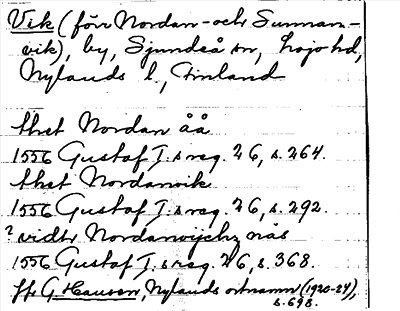 Vik (förr Nordan- och Sunnan-
vik), by, Sjundeå sn, Lojo hd,
Nylands l., Finland
thet Nordan åå
1556 Gustaf I.s reg. 26, s. 264.
thet Nordanvik
1556 Gustaf I.s reg. 26, s. 292.
? vidtr Nordanvijchz näs
1556 Gustaf I.s reg. 26, s. 368.
Jfr G. Hausen, Nylands ortnamn (1920-24),
s. 698.